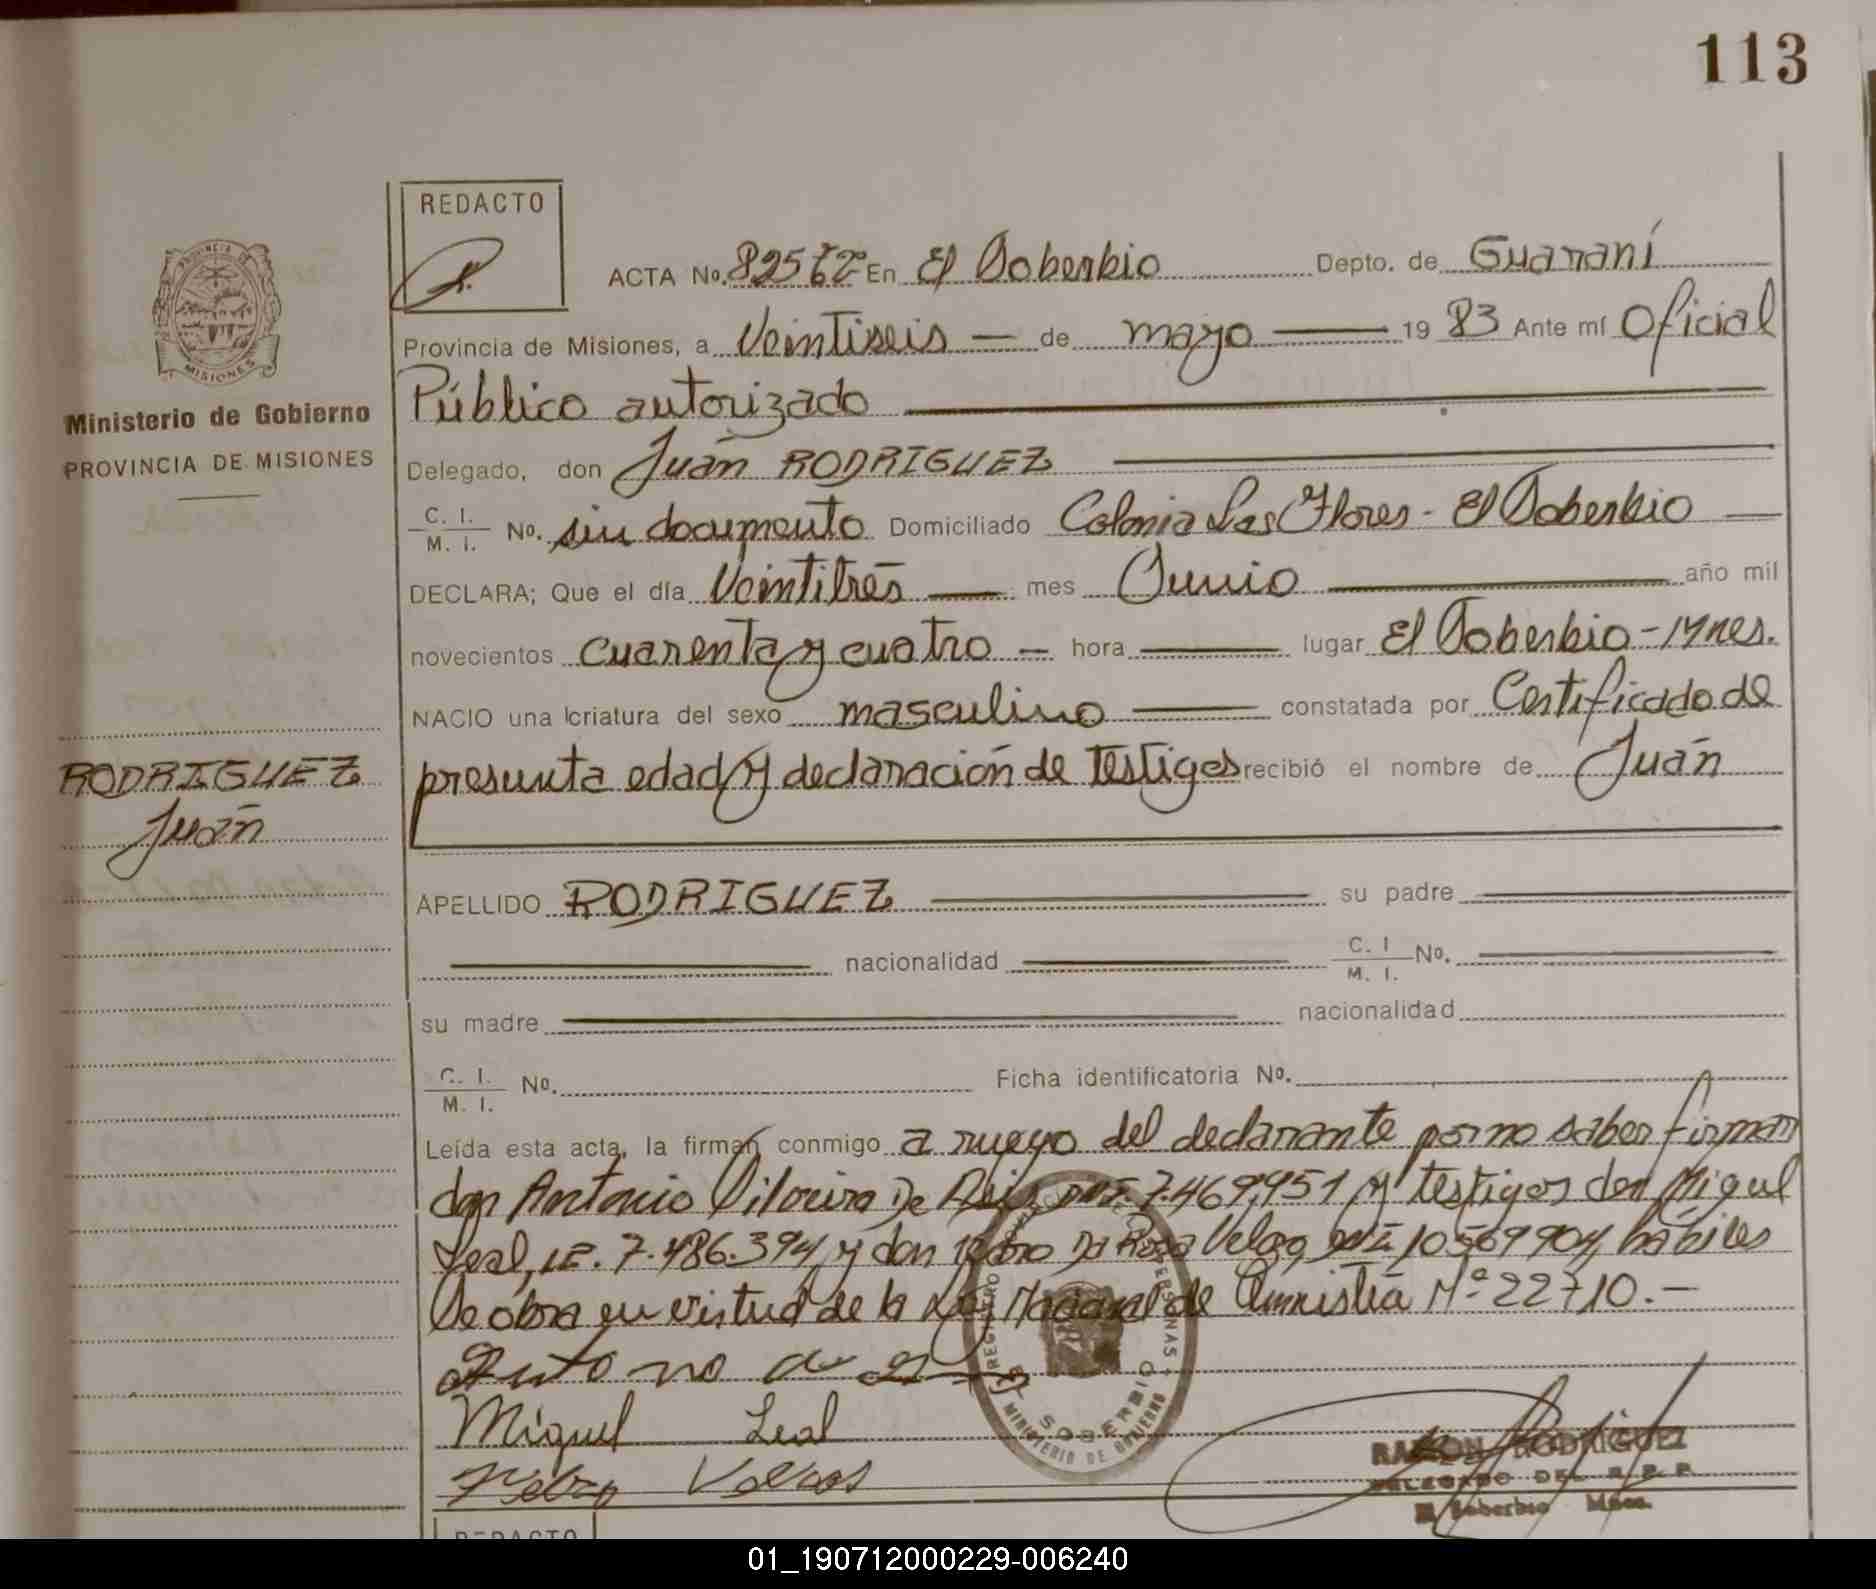 113
REDACTO
ACTA No. En El Soberbio Depto. de Guaraní
Provincia de Misiones, a Veintiseis — de mayo — 19 83 Ante mí Oficial
Público autorizado
Ministerio de Gobierno
PROVINCIA DE MISIONES
Delegado, don Juan RODRIGUEZ
C. I.
M. I. No. sin documento Domiciliado Colonia Las Flores - El Soberbio —
DECLARA; Que el día Veintitrés — mes Junio — año mil
novecientos cuarenta y cuatro — hora — lugar El Soberbio - Mnes.
NACIO una criatura del sexo masculino — constatada por Certificado de
presunta edad y declaración de Testigos recibió el nombre de Juán
RODRIGUEZ
Juán
APELLIDO RODRIGUEZ — su padre —
— nacionalidad — C. I
M. I. No. —
su madre — nacionalidad
C. I.
M. I. No. Ficha identificatoria No.
Leída esta acta, la firman conmigo a ruego del declarante por no saber firmar
don Antonio De 7.469.951 y testigos don Miguel
Leal, LE. 7.486.394, y don Pedro Da Rosa hábiles
Se obra en virtud de la de Amnistía Nº 22710.-
Miguel Leal
REGISTRO PERSONAS
SOBERBIO
MINISTERIO DE GOBIERNO
RAMON RODRIGUEZ
DELEGADO DEL R. P. P.
El Soberbio Mnes.
REDACTO
01_190712000229-006240